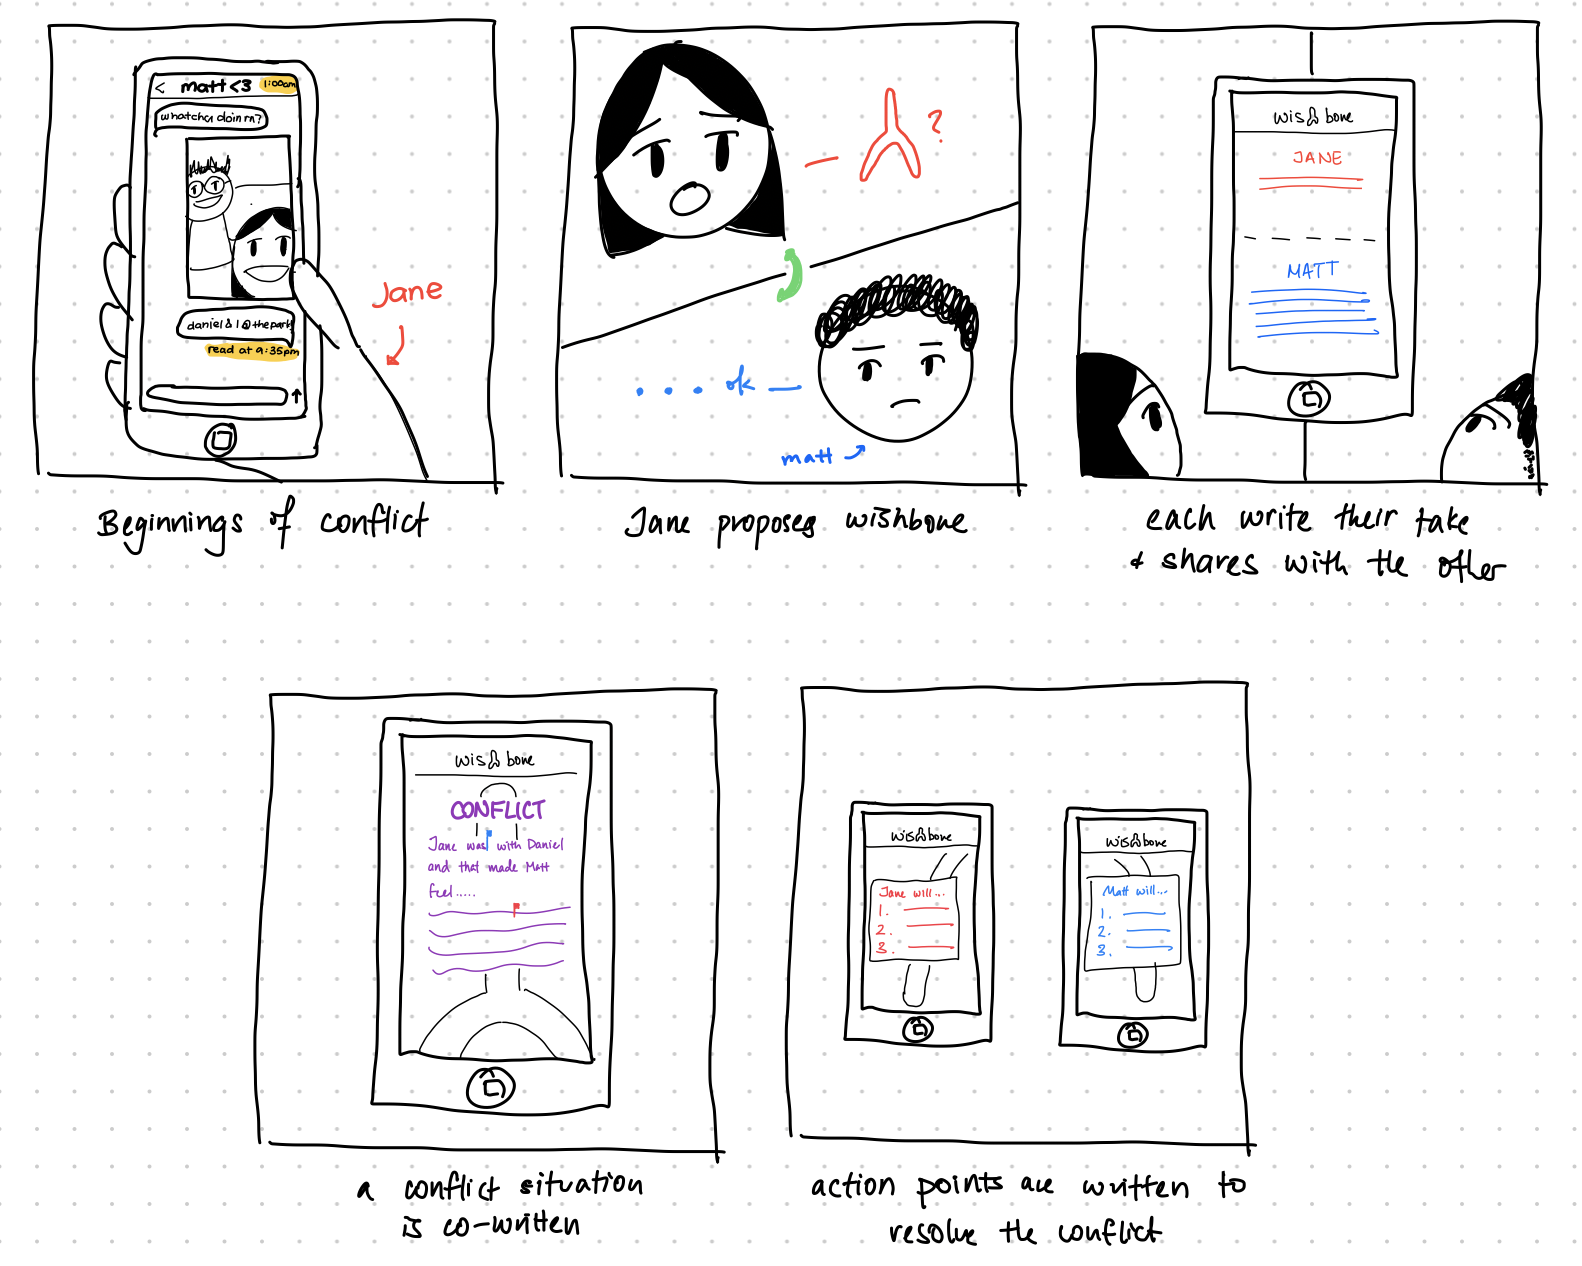 < matt <3 1:00am
whatcha doin rn?
daniel & I @ the park
read at 9:35pm
Jane
Beginnings of conflict
?
.... ok
matt
Jane proposes wishbone
wishbone
JANE
MATT
each write their take
& shares with the other
wishbone
CONFLICT
Jane was with Daniel
and that made Matt
feel.....
a conflict situation
is co-written
wishbone
Jane will...
1.
2.
3.
wishbone
Matt will...
1.
2.
3.
action points are written to
resolve the conflict